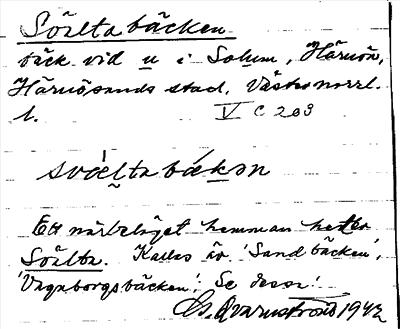 Svältabäcken
bäck vid u i Solum, Härnön,
Härnösands stad, Västernorrl.
l. V C 203
svä̀ltabäkən
Ett närbeläget hemman heter
Svälta. Kallas äv. 'Sandbäcken',
'Vågaborgsbäcken'. Se dessa!
G. Qvarnström 1942